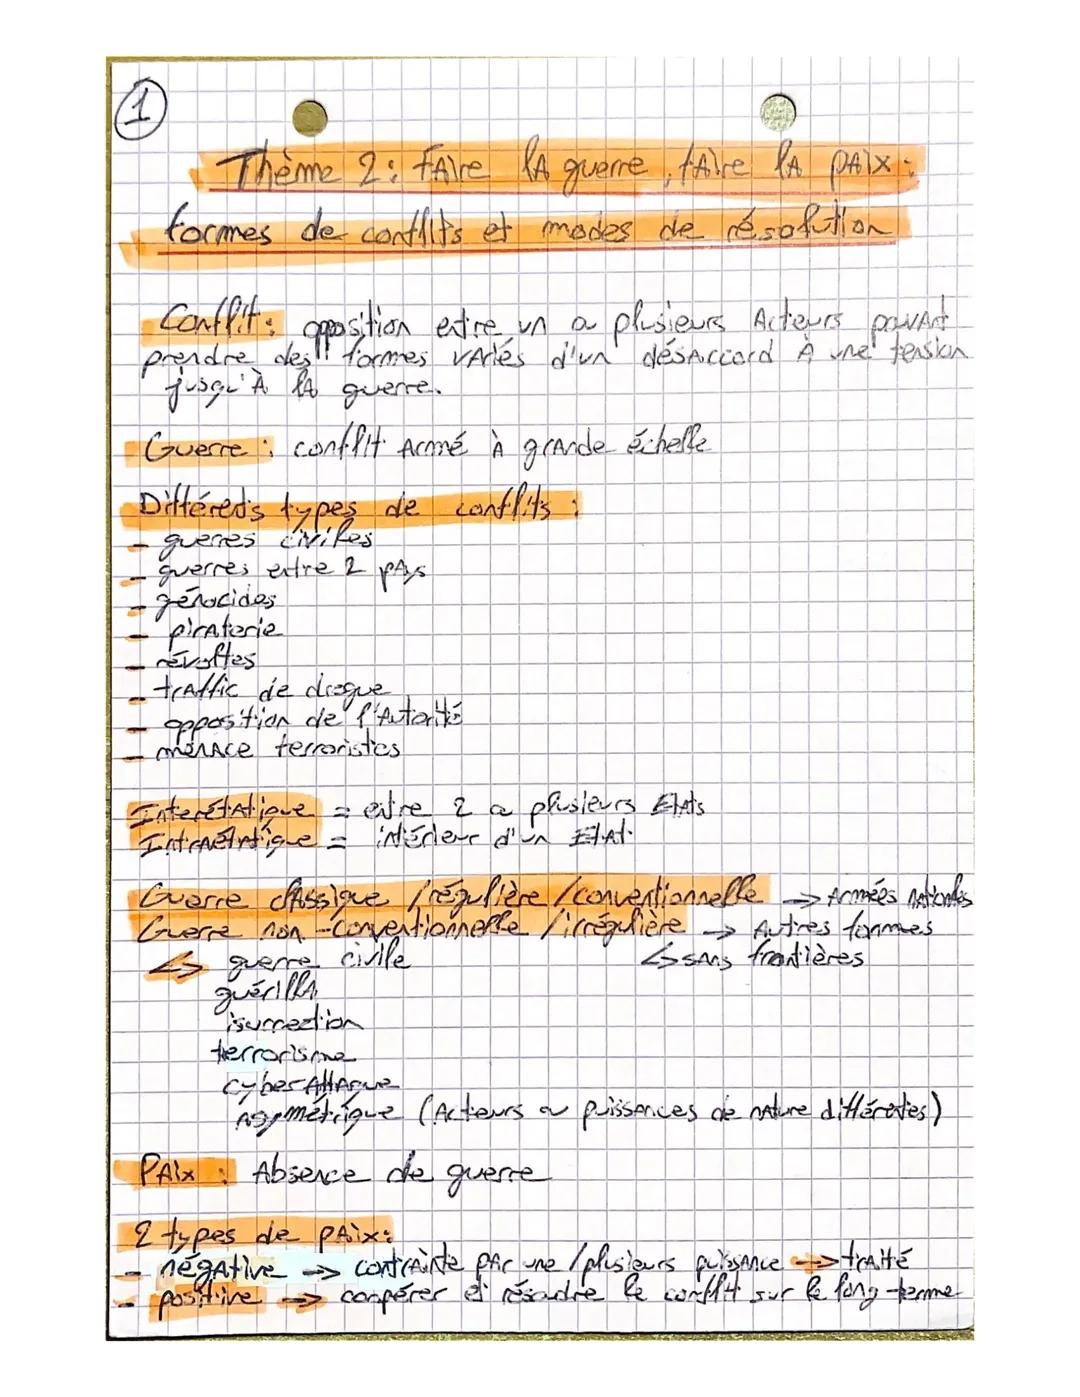 1
Thème 2 : faire la guerre, faire la paix :
formes de conflits et modes de résolution
Conflit : opposition entre un ou plusieurs Acteurs pouvant
prendre des formes variés d'un désaccord à une tension
jusqu'à la guerre.
Guerre : conflit armé à grande échelle
Différents types de conflits :
- guerres civiles
- guerres entre 2 pays
- génocides
- piraterie
- révoltes
- traffic de drogue
- opposition de l'Autorité
- menace terroristes
Interétatique = entre 2 ou plusieurs États
Intraétatique = intérieur d'un État
Guerre classique / régulière / conventionnelle → Armées nationales
Guerre non-conventionnelle / irrégulière → Autres formes
↳ guerre civile ↳ sans frontières
guérilla
isurrection
terrorisme
cyberAttaque
asymétrique (Acteurs ou puissances de nature différentes)
Paix : Absence de guerre
2 types de paix :
- négative → contrainte par une / plusieurs puissance → traité
- positive → coopérer et résoudre le conflit sur le long-terme